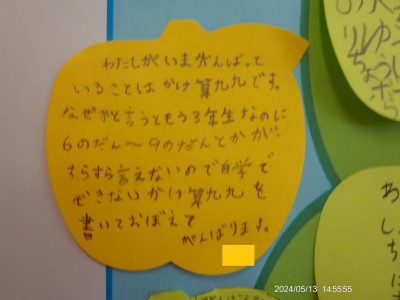 わたしがいまがんばって
いることはかけ算九九です。
なぜかと言うともう3年生なのに
6のだん〜9のだんとかが
すらすら言えないので自学で
できないかけ算九九を
書いておぼえて
がんばります。
2024/05/13 14:55:55